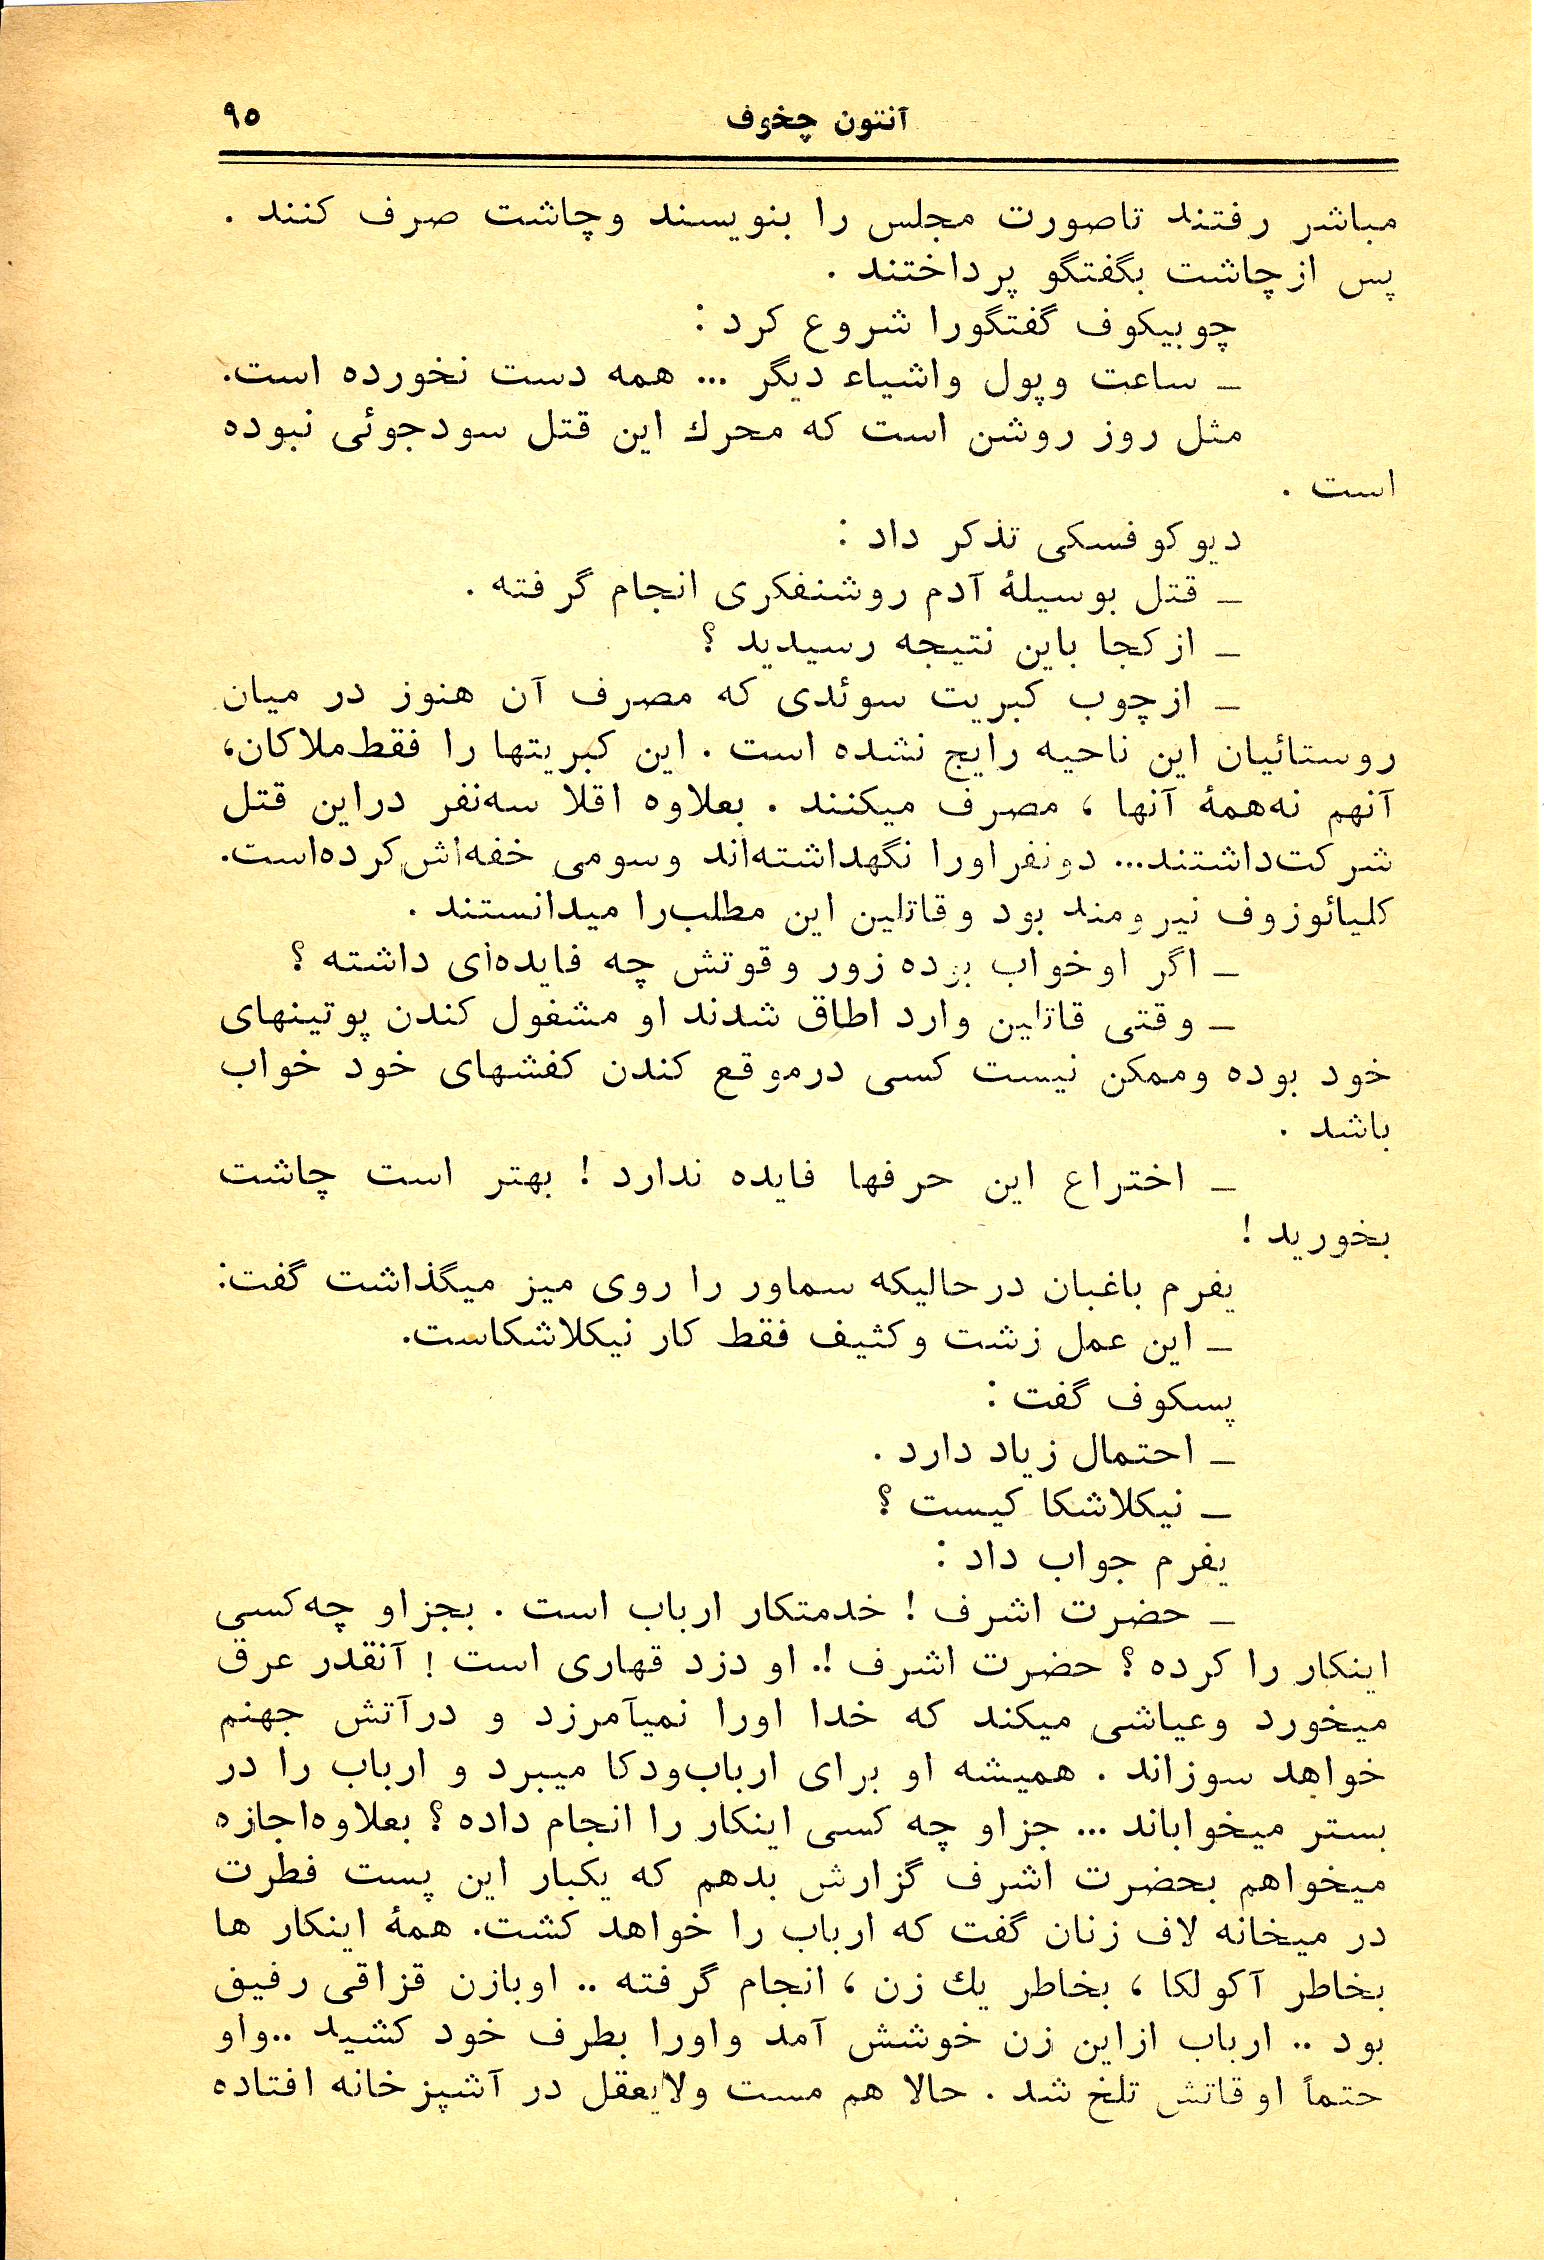 آنتون چخوف ۹۵
مباشر رفتند تاصورت مجلس را بنویسند وچاشت صرف کنند .
پس ازچاشت بگفتگو پرداختند .
چوبیکوف گفتگورا شروع کرد :
ـ ساعت وپول واشیاء دیگر ... همه دست نخورده است.
مثل روز روشن است که محرك این قتل سودجوئی نبوده
است .
دیوکوفسکی تذکر داد :
ـ قتل بوسیلۀ آدم روشنفکری انجام گرفته .
ـ ازکجا باین نتیجه رسیدید ؟
ـ ازچوب کبریت سوئدی که مصرف آن هنوز در میان
روستائیان این ناحیه رایج نشده است . این کبریتها را فقط‌ملاکان،
آنهم نه‌همۀ آنها ، مصرف میکنند . بعلاوه اقلا سه‌نفر دراین قتل
شرکت‌داشتند... دونفراورا نگهداشته‌اند وسومی خفه‌اش‌کرده‌است.
کلیائوزوف نیرومند بود وقاتلین این مطلب‌را میدانستند .
ـ اگر اوخواب بوده زور وقوتش چه فایده‌ای داشته ؟
ـ وقتی قاتلین وارد اطاق شدند او مشغول کندن پوتینهای
خود بوده وممکن نیست کسی درموقع کندن کفشهای خود خواب
باشد .
ـ اختراع این حرفها فایده ندارد ! بهتر است چاشت
بخورید !
یفرم باغبان درحالیکه سماور را روی میز میگذاشت گفت:
ـ این عمل زشت وکثیف فقط کار نیکلاشکاست.
پسکوف گفت :
ـ احتمال زیاد دارد .
ـ نیکلاشکا کیست ؟
یفرم جواب داد :
ـ حضرت اشرف ! خدمتکار ارباب است . بجزاو چه‌کسی
اینکار را کرده ؟ حضرت اشرف !. او دزد قهاری است ! آنقدر عرق
میخورد وعیاشی میکند که خدا اورا نمیآمرزد و درآتش جهنم
خواهد سوزاند . همیشه او برای ارباب‌ودکا میبرد و ارباب را در
بستر میخواباند ... جزاو چه کسی اینکار را انجام داده ؟ بعلاوه‌اجازه
میخواهم بحضرت اشرف گزارش بدهم که یکبار این پست فطرت
در میخانه لاف زنان گفت که ارباب را خواهد کشت. همۀ اینکار ها
بخاطر آکولکا ، بخاطر یك زن ، انجام گرفته .. اوبازن قزاقی رفیق
بود .. ارباب ازاین زن خوشش آمد واورا بطرف خود کشید ..واو
حتماً اوقاتش تلخ شد . حالا هم مست ولایعقل در آشپزخانه افتاده